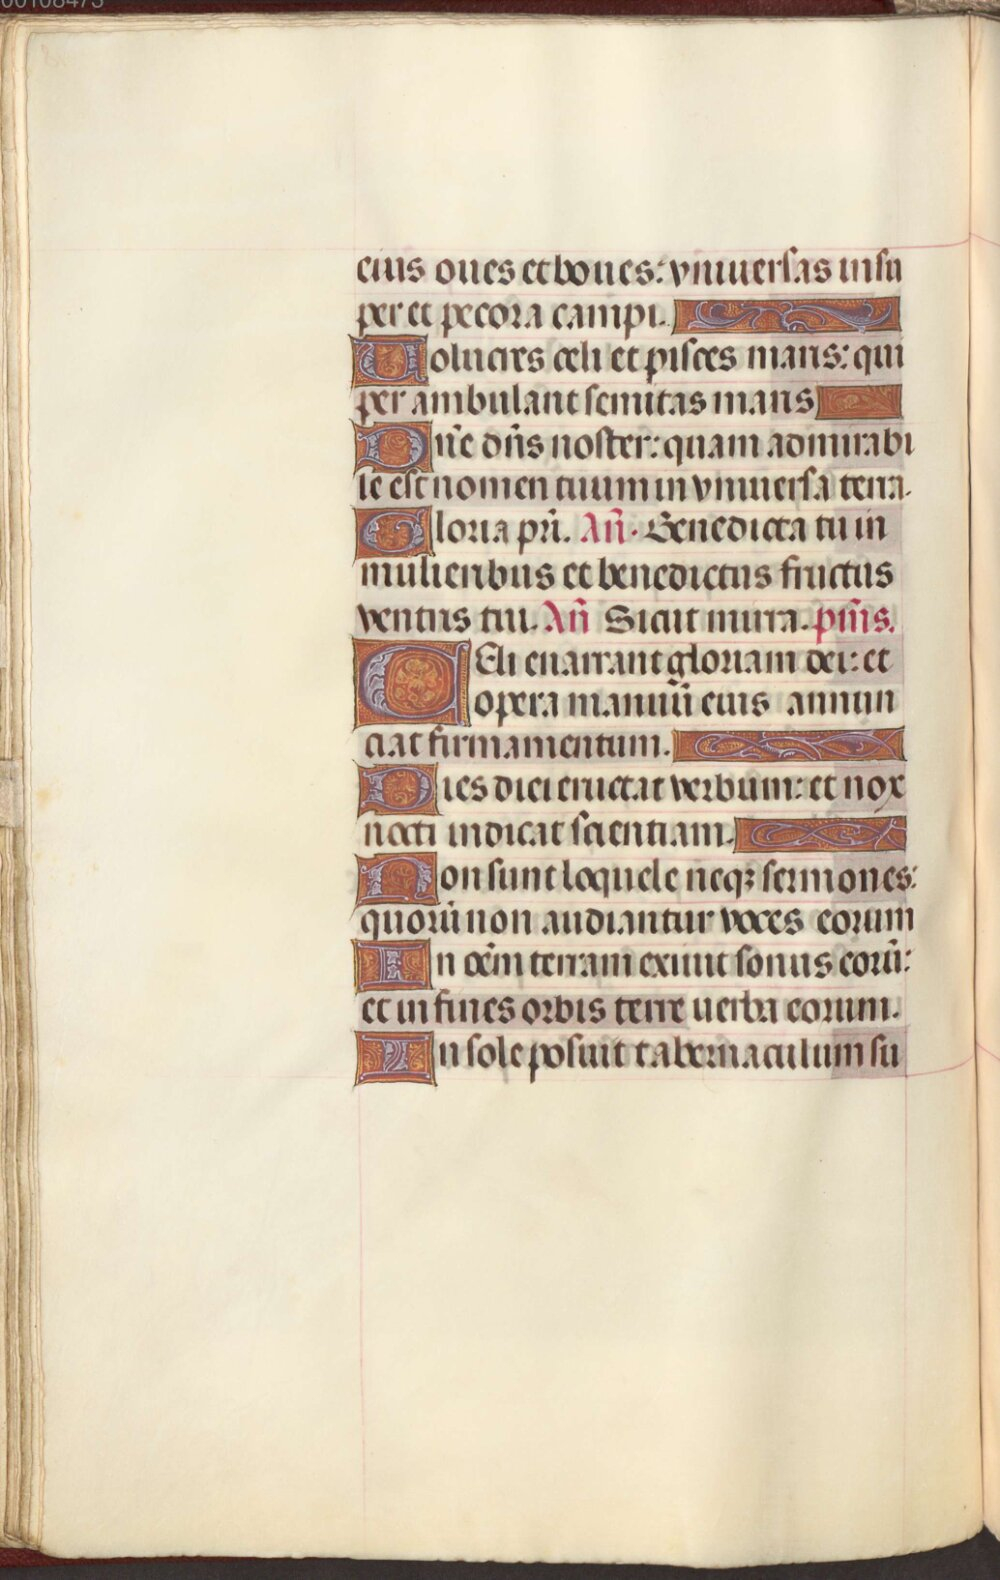 00108473
eius oues et boues: vniuersas insu
per et pecora campi.
Uolucres celi et pisces maris: qui
per ambulant semitas maris
Dn̄e dn̄s noster: quam admirabi
le est nomen tuum in vniuersa terra.
Gloria pr̄i. An̄. Benedicta tu in
mulieribus et benedictus fructus
ventris tui. An̄ Sicut mirra. ps̄ms.
Celi enarrant gloriam dei: et
opera manuū eius annun
ciat firmamentum.
Dies diei eructat verbum: et nox
nocti indicat scientiam.
Non sunt loquele neqꝫ sermones:
quorū non audiantur voces eorum
In oēm terram exiuit sonus eorū:
et in fines orbis terre uerba eorum.
In sole posuit tabernaculum su